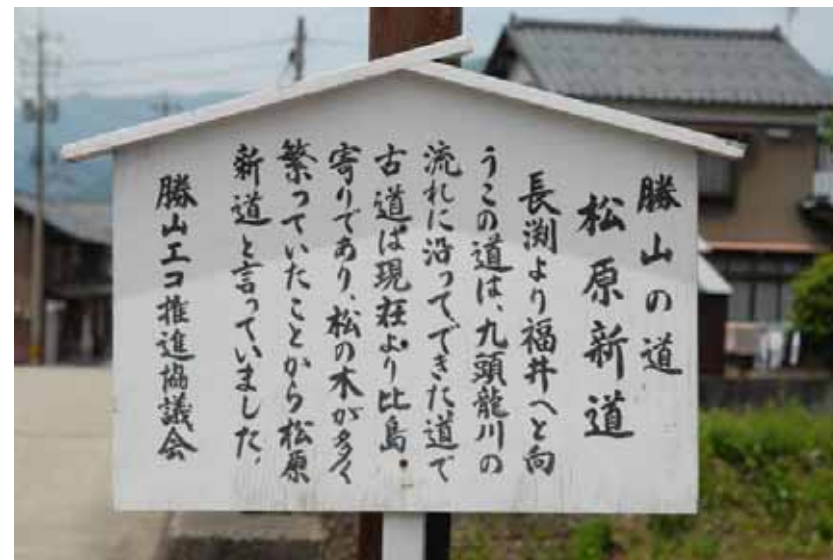 勝山の道
松原新道
長渕より福井へと向
うこの道は、九頭龍川の
流れに沿ってできた道で
古道は現在より比島
寄りであり、松の木が多く
繁っていたことから松原
新道と言っていました。
勝山エコ推進協議会